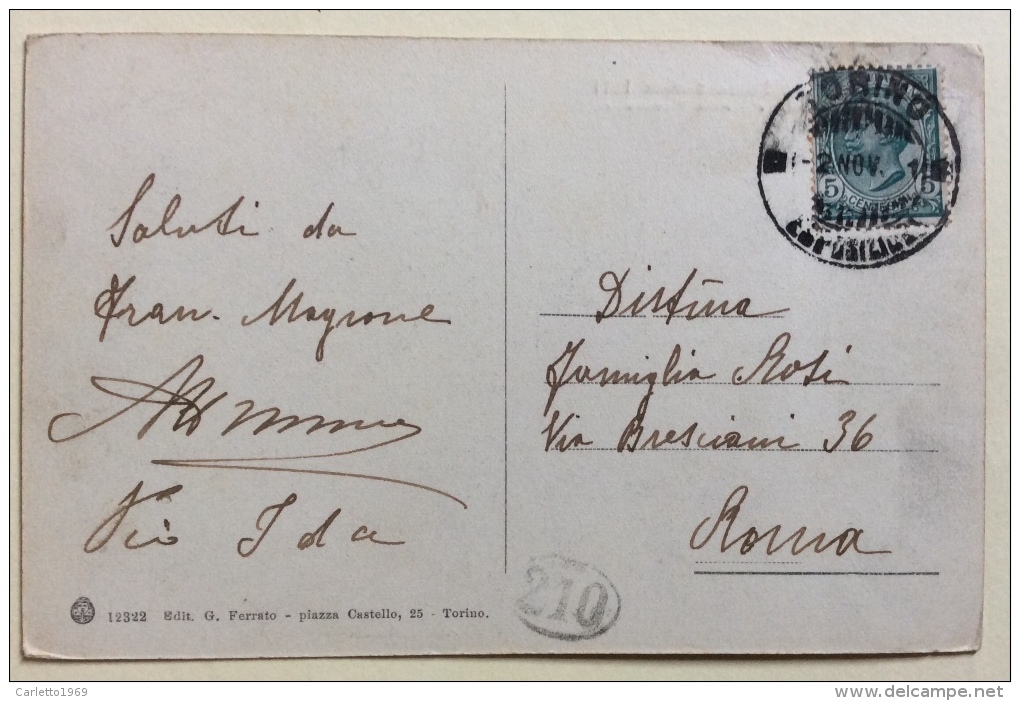 TORINO
1-2 NOV. 11
ESPOSIZIONE
5 CENTESIMI 5
Saluti da
Fran. Magrone
Via Ida
Distina
Famiglia Rosi
Via Bresciani 36
Roma
210
12322 Edit. G. Ferrato - piazza Castello, 25 - Torino.
Carletto1969
http://www.delcampe.net